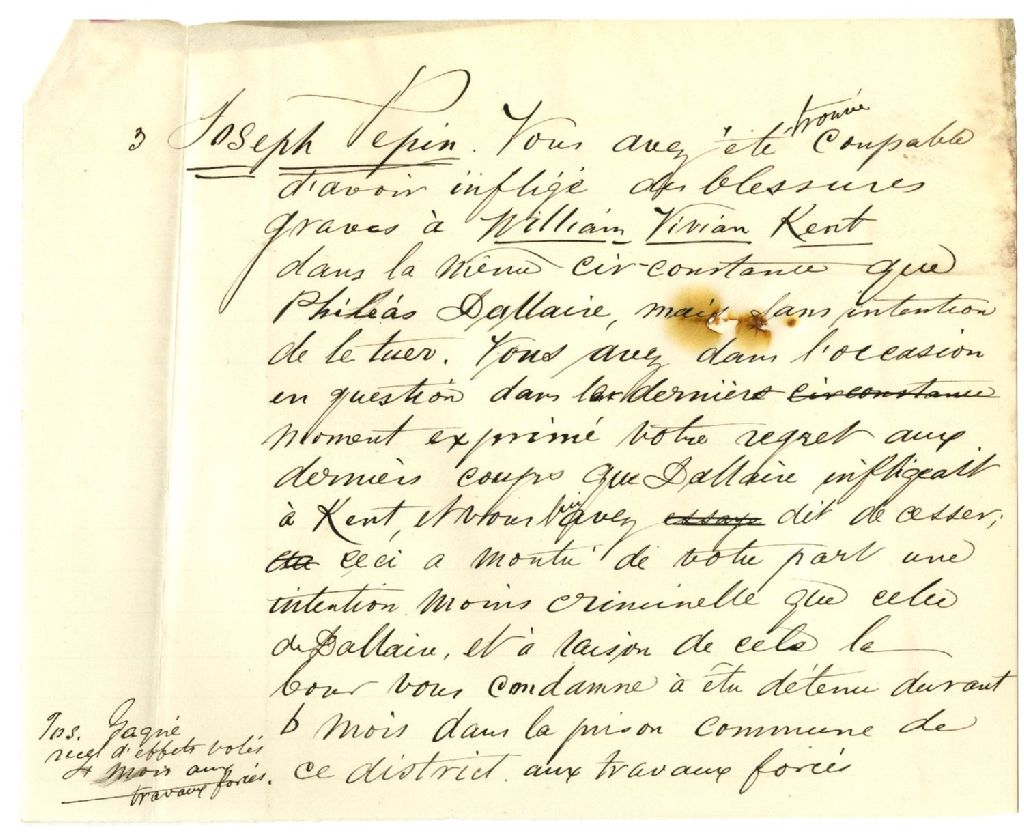 3 Joseph Pepin. Vous avez été trouvé coupable
d'avoir infligé des blessures
graves à William Vivian Kent
dans la même circonstance que
Philéas Dallaire, mais sans intention
de le tuer. Vous avez dans l'occasion
en question dans les derniers circonstance
moment exprimé votre regret aux
derniers coups que Dallaire infligeait
à Kent, et vous lui avez essayé dit de cesser;
ceci a montré de votre part une
intention moins criminelle que celle
de Dallaire, et à raison de cela la
Cour vous condamne à être détenu durant
6 mois dans la prison commune de
ce district aux travaux forcés
Jos. Gagné
recel d'effets volés
4 mois aux
travaux forcés.